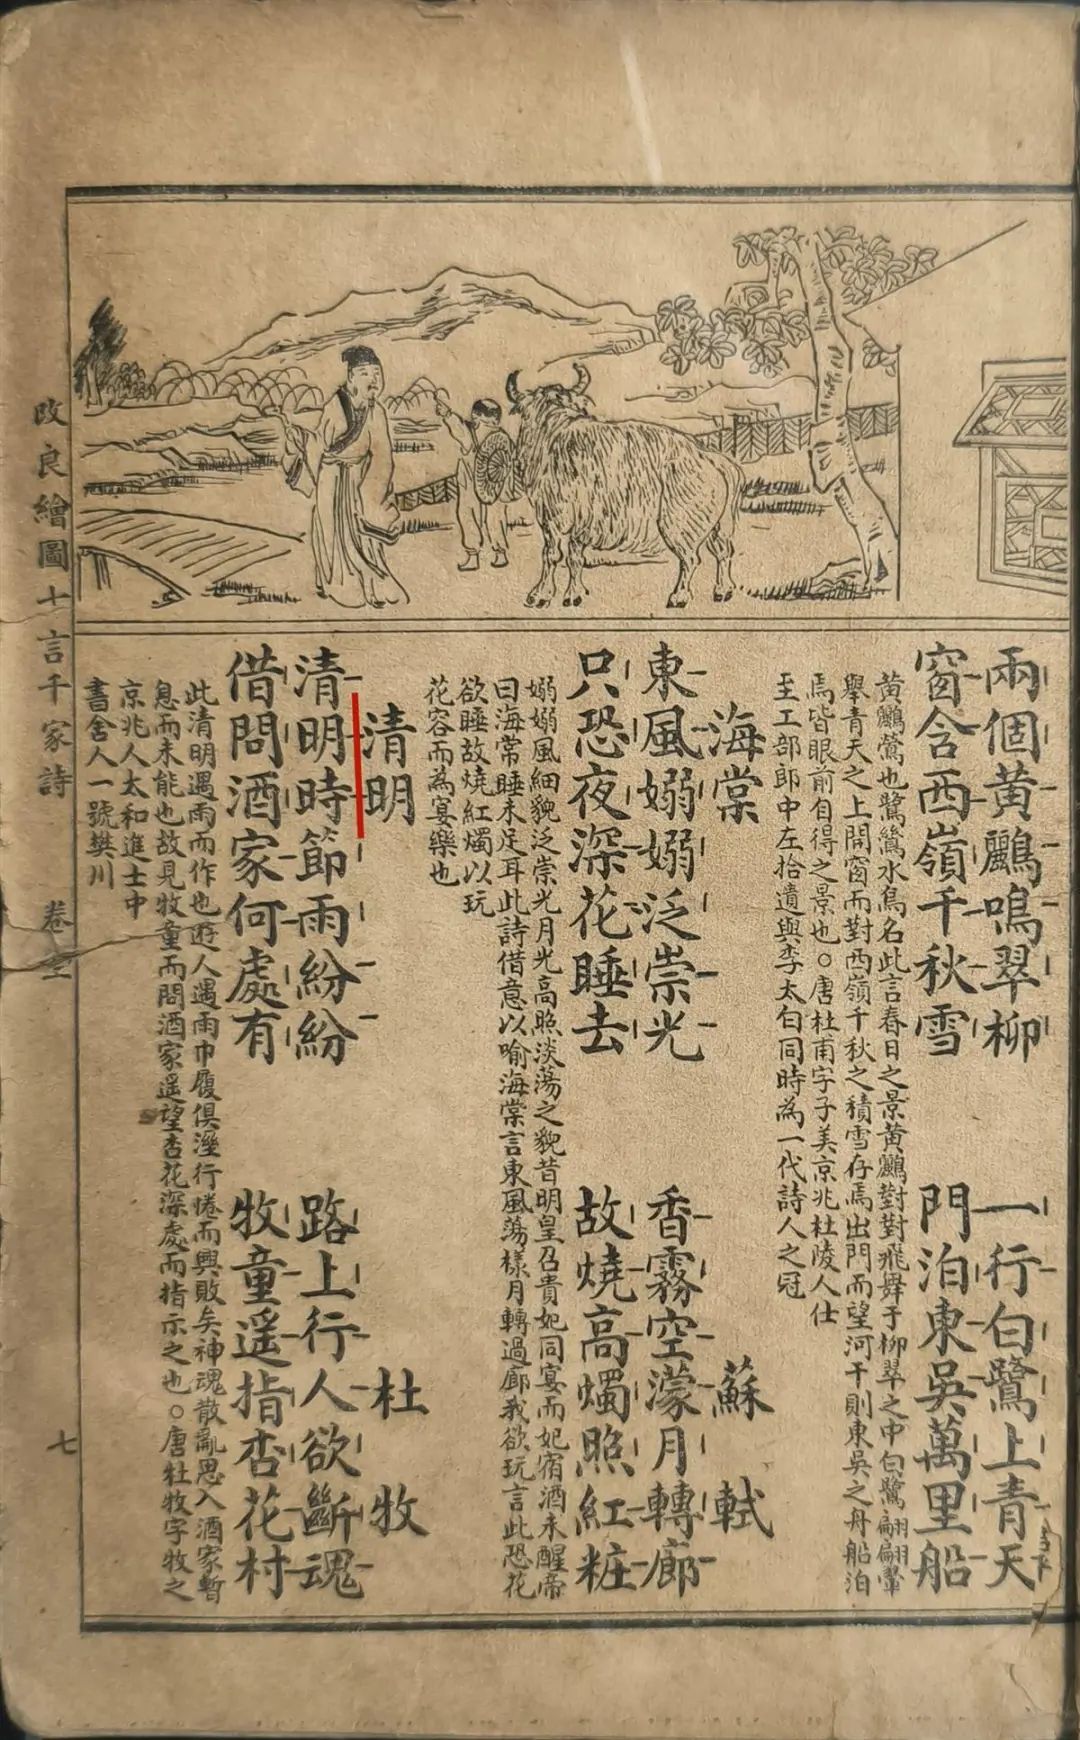 兩個黃鸝鳴翠柳
一行白鷺上青天
窗含西嶺千秋雪
門泊東吳萬里船
黃鸝鶯也鷺鷥水鳥名此言春日之景黃鸝對對飛舞于柳翠之中白鷺翩翩暈
舉青天之上開窗而對西嶺千秋之積雪存焉出門而望河干則東吳之舟船泊
焉皆眼前自得之景也○唐杜甫字子美京兆杜陵人仕
至工部郎中左拾遺與李太白同時為一代詩人之冠
海棠
蘇軾
東風嫋嫋泛崇光
香霧空濛月轉廊
只恐夜深花睡去
故燒高燭照紅粧
嫋嫋風細貌泛崇光月光高照淡蕩之貌昔明皇召貴妃同宴而妃宿酒未醒帝
曰海棠睡未足耳此詩借意以喻海棠言東風蕩樣月轉過廊我欲玩言此恐花
欲睡故燒紅燭以玩
花容而為宴樂也
清明
杜牧
清明時節雨紛紛
路上行人欲斷魂
借問酒家何處有
牧童遥指杏花村
此清明遇雨而作也遊人遇雨巾履俱溼行倦而興敗矣神魂散亂思入酒家暫
息而未能也故見牧童而問酒家遥望杏花深處而指示之也○唐杜牧字牧之
京兆人太和進士中
書舍人一號樊川
改良繪圖七言千家詩
卷
七